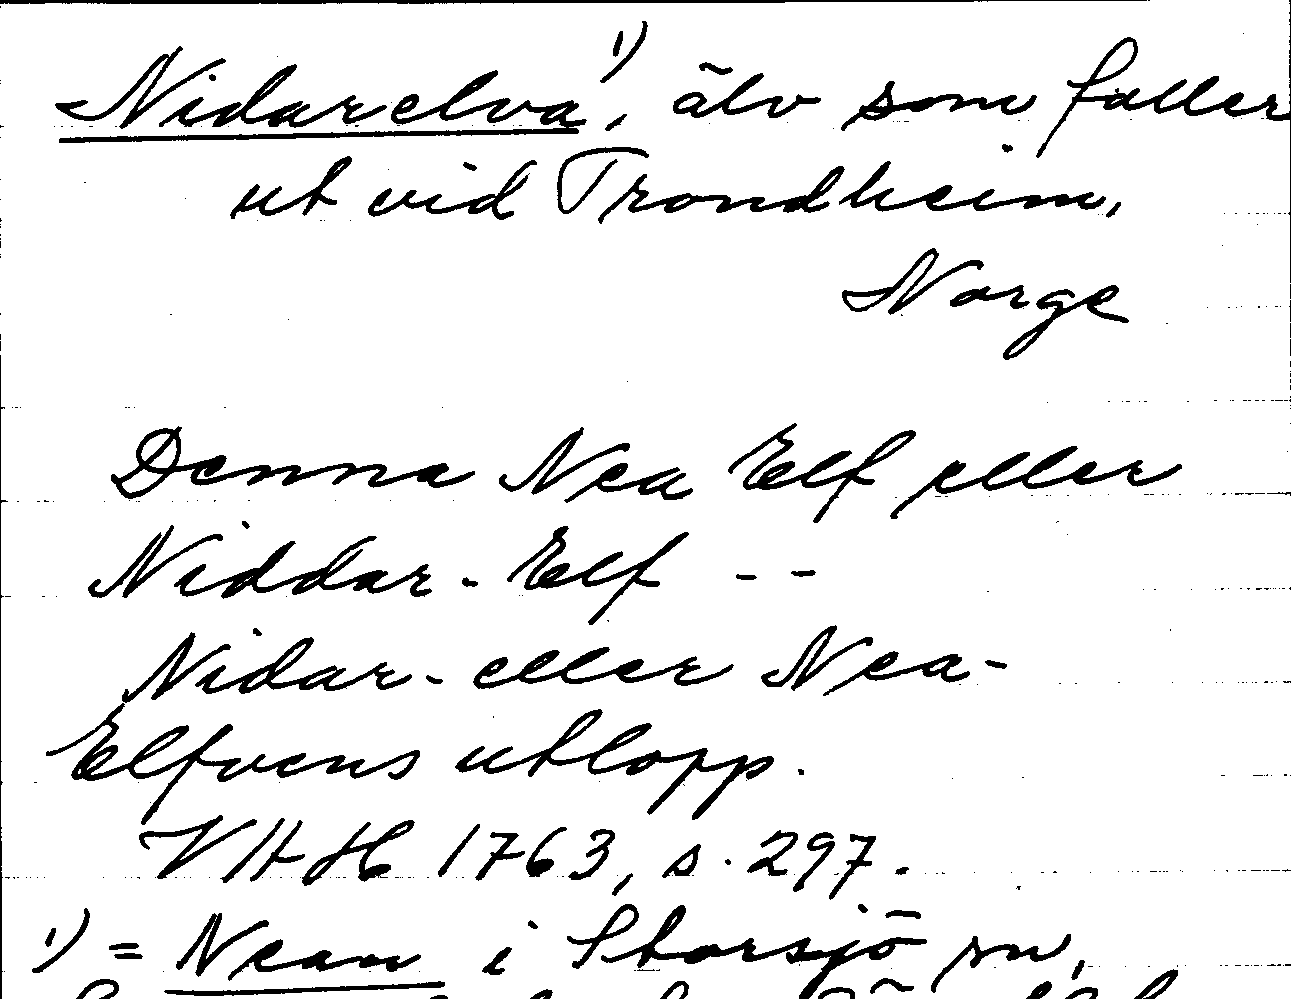 Nidarelva¹⁾, älv som faller
ut vid Trondheim,
Norge
Denna Nea Elf eller
Niddar-Elf --
Nidar- eller Nea-
Elfvens utlopp.
VHAH 1763, s. 297.
¹⁾ = Nean i Storsjö sn,